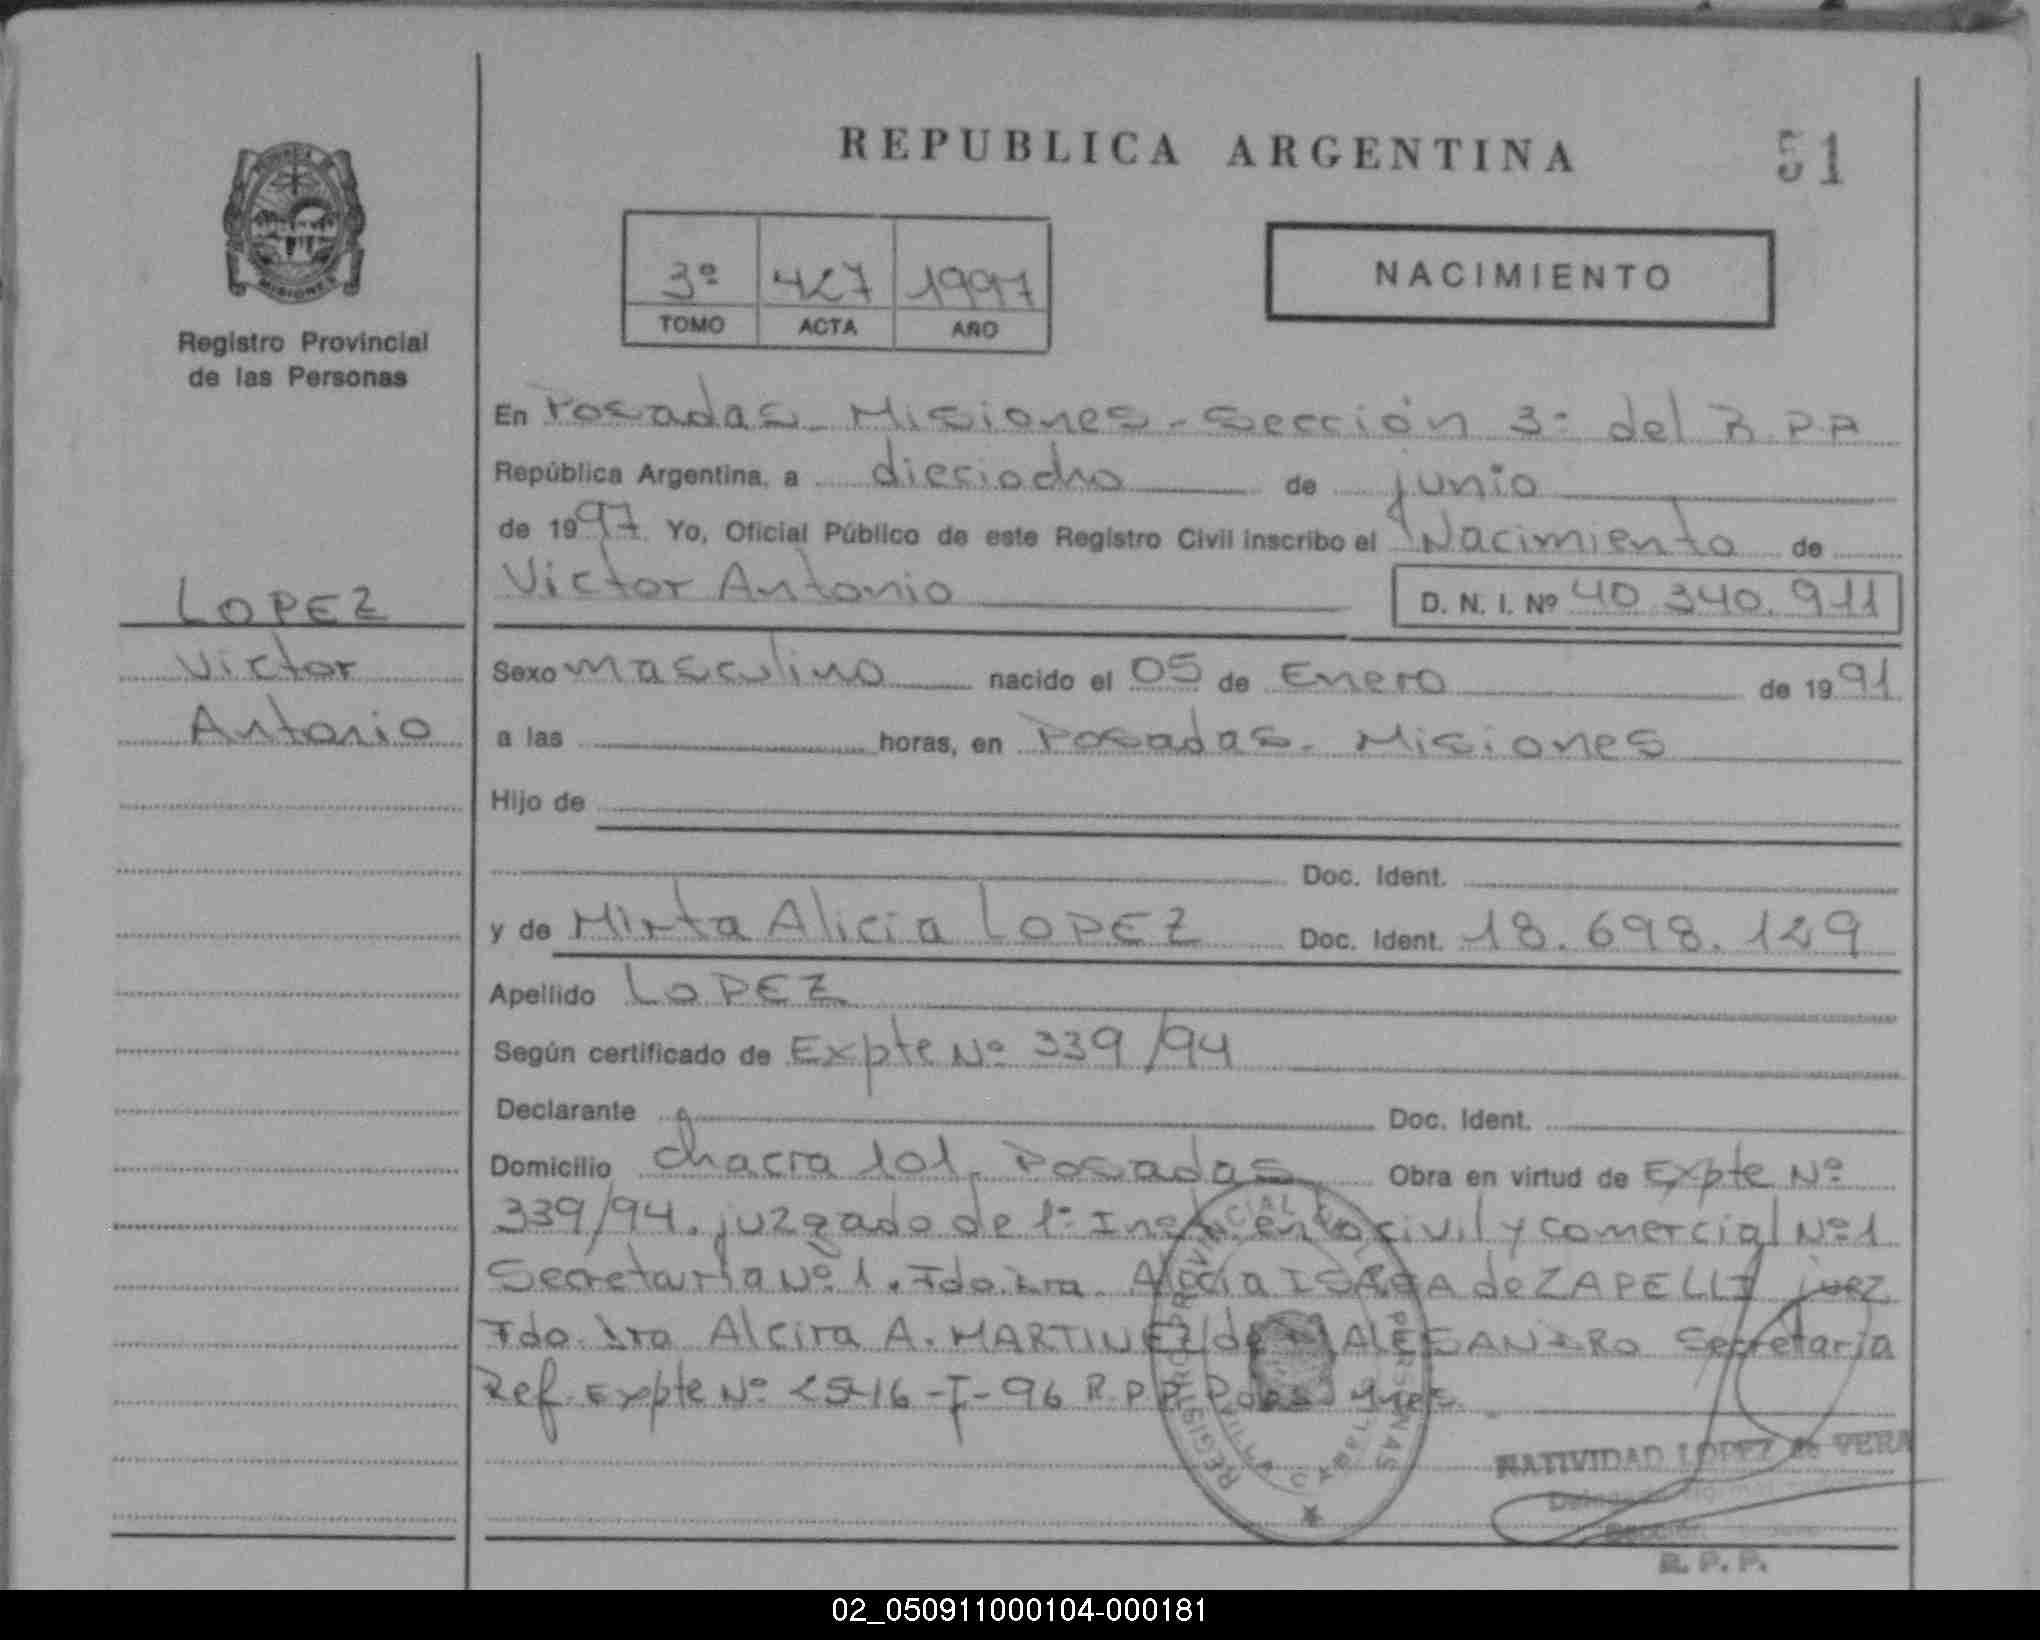 REPUBLICA ARGENTINA
51
MISIONES
Registro Provincial
de las Personas
3º 427 1997
TOMO ACTA AÑO
NACIMIENTO
En Posadas - Misiones - Sección 3º del R.P.P
República Argentina, a dieciocho de junio
de 1997. Yo, Oficial Público de este Registro Civil inscribo el Nacimiento de
Victor Antonio D. N. I. Nº 40.340.911
LOPEZ
Victor
Antonio
Sexo masculino nacido el 05 de Enero de 1991
a las horas, en Posadas - Misiones
Hijo de
Doc. Ident.
y de Mirta Alicia LOPEZ Doc. Ident. 18.698.129
Apellido LOPEZ
Según certificado de Expte Nº 339/94
Declarante Doc. Ident.
Domicilio chacra 101. Posadas Obra en virtud de Expte Nº
339/94. juzgado de 1º Inst. en lo civil y comercial Nº 1
Secretaria Nº 1. Fdo. Dra. de ZAPELLI juez
Fdo. Dra Alcira A. MARTINEZ de D'ALESANDRO Secretaria
Ref. Expte Nº 2546-I-96 R.P.P. Pdas Mnes.
REGISTRO PROVINCIAL DE LAS PERSONAS
NATIVIDAD LOPEZ de VERA
R. P. P.
02_050911000104-000181